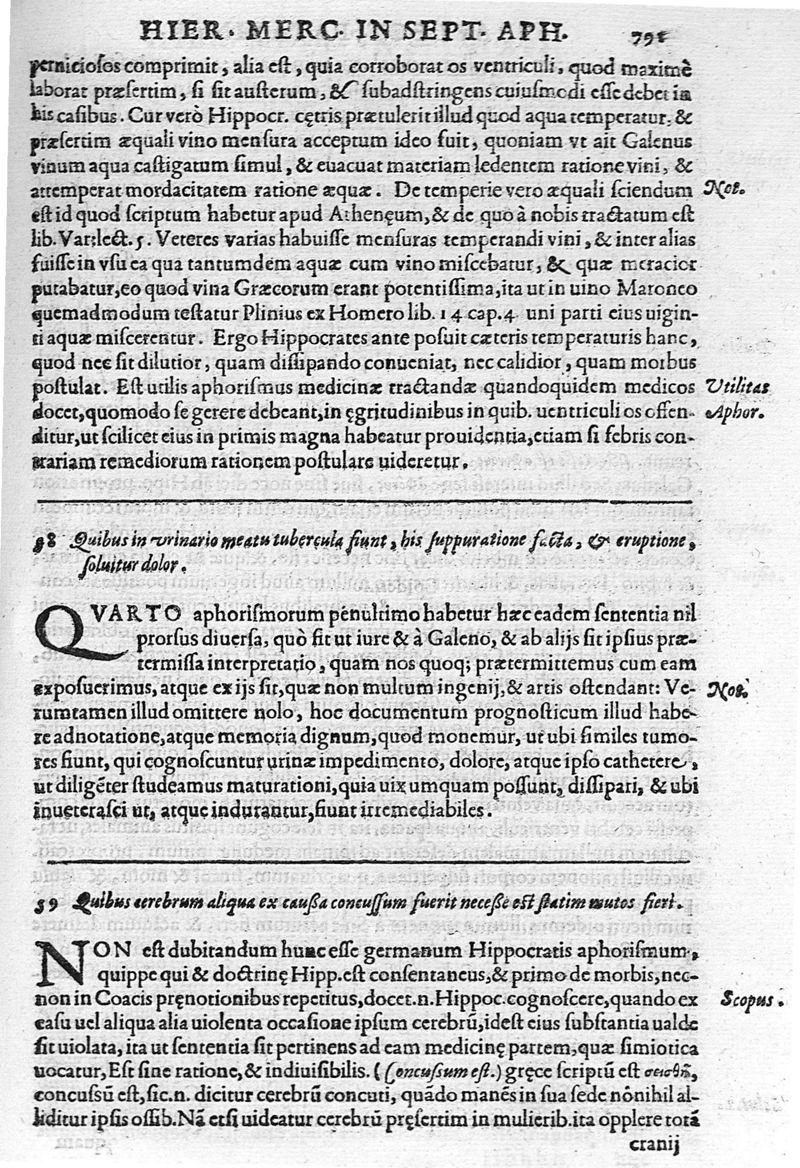 HIER. MERC. IN SEPT. APH. 791
perniciosos comprimit, alia est, quia corroborat os ventriculi, quod maximè
laborat præsertim, si sit austerum, & subadstringens cuiusmodi esse debet in
his casibus. Cur verò Hippocr. cętris prætulerit illud quod aqua temperatur, &
præsertim æquali vino mensura acceptum ideo fuit, quoniam vt ait Galenus
vinum aqua castigatum simul, & euacuat materiam ledentem ratione vini, &
attemperat mordacitatem ratione æquæ. De temperie vero æquali sciendum Not.
est id quod scriptum habetur apud Athenęum, & de quo à nobis tractatum est
lib. Var. lect. 5. Veteres varias habuisse mensuras temperandi vini, & inter alias
fuisse in vsu ea qua tantumdem aquæ cum vino miscebatur, & quæ meracior
putabatur, eo quod vina Græcorum erant potentissima, ita ut in uino Maroneo
quemadmodum testatur Plinius ex Homero lib. 14 cap. 4 uni parti eius uigin-
ti aquæ miscerentur. Ergo Hippocrates ante posuit cæteris temperaturis hanc,
quod nec sit dilutior, quam dissipando conueniat, nec calidior, quam morbus
postulat. Est utilis aphorismus medicinæ tractandæ quandoquidem medicos Vtilitas
docet, quomodo se gerere debeant, in ęgritudinibus in quib. uentriculi os offen- Aphor.
ditur, ut scilicet eius in primis magna habeatur prouidentia, etiam si febris con-
trariam remediorum rationem postulare uideretur.
58 Quibus in vrinario meatu tubercula fiunt, his suppuratione facta, & eruptione,
soluitur dolor.
QVARTO aphorismorum penultimo habetur hæc eadem sententia nil
prorsus diuersa, quò fit ut iure & à Galeno, & ab alijs sit ipsius præ-
termissa interpretatio, quam nos quoq; prætermittemus cum eam
exposuerimus, atque ex ijs sit, quæ non multum ingenij, & artis ostendant: Ve- Not.
rumtamen illud omittere nolo, hoc documentum prognosticum illud habe-
re adnotatione, atque memoria dignum, quod monemur, ut ubi similes tumo-
res fiunt, qui cognoscuntur urinæ impedimento, dolore, atque ipso cathetere,
ut diligēter studeamus maturationi, quia uix umquam possunt, dissipari, & ubi
inueterasci ut, atque indurantur, fiunt irremediabiles.
59 Quibus cerebrum aliqua ex caußa concussum fuerit necesse est statim mutos fieri.
NON est dubitandum hunc esse germanum Hippocratis aphorismum,
quippe qui & doctrinę Hipp. est consentaneus, & primo de morbis, nec-
non in Coacis pręnotionibus repetitus, docet. n. Hippoc. cognoscere, quando ex Scopus.
casu uel aliqua alia uiolenta occasione ipsum cerebrū, idest eius substantia ualde
sit uiolata, ita ut sententia sit pertinens ad eam medicinę partem, quæ simiotica
uocatur, Est sine ratione, & indiuisibilis. (Concussum est.) gręce scriptū est σεισθῇ,
concussū est, sic. n. dicitur cerebrū concuti, quādo manēs in sua sede nōnihil al-
liditur ipsis ossib. Nā etsi uideatur cerebrū pręsertim in mulierib. ita opplere totā
cranij